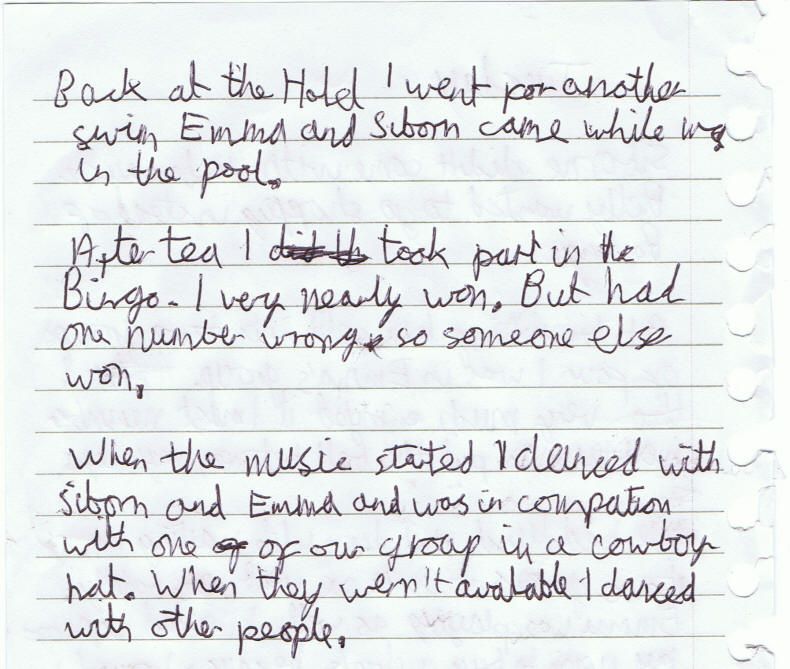 Back at the Hotel I went for another
swim Emma and Siborn came while I was
in the pool.
After tea I did th took part in the
Bingo. I very nearly won. But had
one number wrong, so someone else
won.
When the music stated I danced with
Siborn and Emma and was in compation
with one of of our group in a cowboy
hat. When they wern't avalable I danced
with other people.